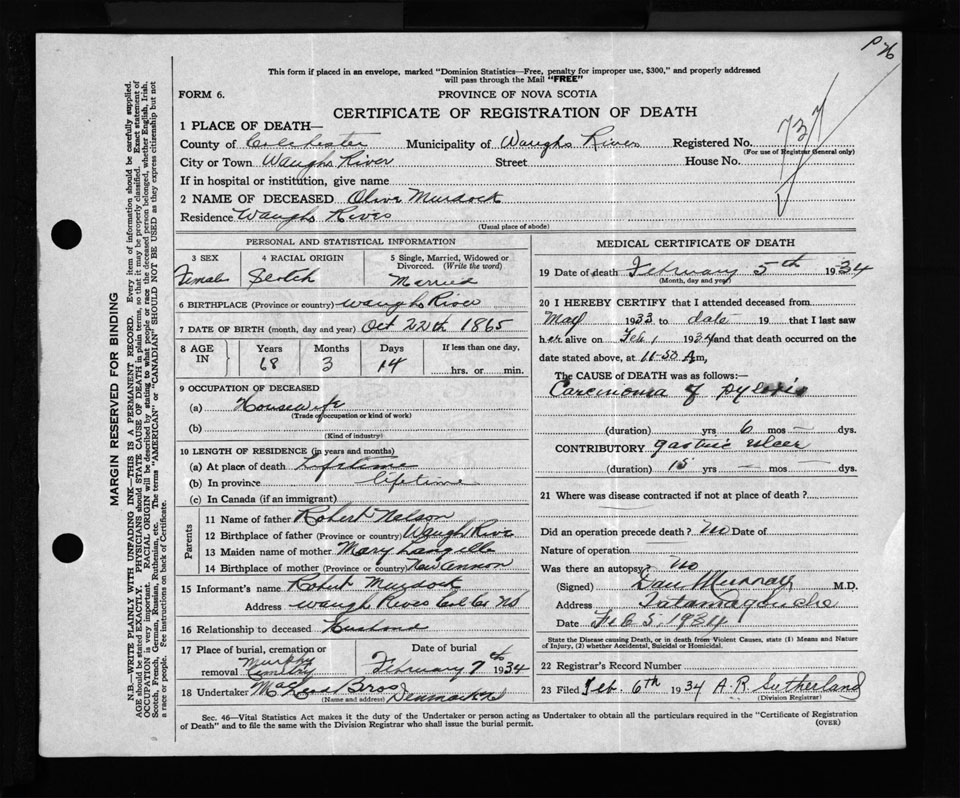 P 26
This form if placed in an envelope, marked "Dominion Statistics—Free, penalty for improper use, $300," and properly addressed
will pass through the Mail "FREE"
FORM 6. PROVINCE OF NOVA SCOTIA
CERTIFICATE OF REGISTRATION OF DEATH
737
1 PLACE OF DEATH—
County of Colchester Municipality of Waughs River Registered No.
(For use of Registrar General only)
City or Town Waughs River Street House No.
If in hospital or institution, give name
2 NAME OF DECEASED Olive Murdock
Residence Waughs River
(Usual place of abode)
PERSONAL AND STATISTICAL INFORMATION
3 SEX 4 RACIAL ORIGIN 5 Single, Married, Widowed or Divorced. (Write the word)
Female Scotch Married
6 BIRTHPLACE (Province or country) Waughs River
7 DATE OF BIRTH (month, day and year) Oct 22th 1865
8 AGE IN Years Months Days If less than one day,
68 3 14 hrs. or min.
9 OCCUPATION OF DECEASED
(a) Housewife
(Trade or occupation or kind of work)
(b)
(Kind of industry)
10 LENGTH OF RESIDENCE (in years and months)
(a) At place of death Lifetime
(b) In province lifetime
(c) In Canada (if an immigrant)
Parents
11 Name of father Robert Nelson
12 Birthplace of father (Province or country) Waugh River
13 Maiden name of mother Mary Langille
14 Birthplace of mother (Province or country) New Annon
15 Informant's name Robert Murdock
Address Waugh River Col Co NS
16 Relationship to deceased Husband
17 Place of burial, cremation or removal Murphy Cemetry Date of burial February 7th 1934
18 Undertaker Bros Denmark NS
(Name and address)
MEDICAL CERTIFICATE OF DEATH
19 Date of death February 5th 1934
(Month, day and year)
20 I HEREBY CERTIFY that I attended deceased from
May 1933 to date 19 that I last saw
her alive on Feb, 1934 and that death occurred on the
date stated above, at 11-50 Am,
The CAUSE OF DEATH was as follows:—
Carcinoma of pyloris
(duration) yrs 6 mos — dys.
CONTRIBUTORY gastric ulcer
(duration) 15 yrs — mos — dys.
21 Where was disease contracted if not at place of death?
Did an operation precede death? No Date of
Nature of operation
Was there an autopsy? No
(Signed) Dan Murray M.D.
Address Tatamagouche
Date Feb 5, 1934
State the Disease causing Death, or in death from Violent Causes, state (1) Means and Nature
of Injury, (2) whether Accidental, Suicidal or Homicidal.
22 Registrar's Record Number
23 Filed Feb. 6th 1934 A. R. Sutherland
(Division Registrar)
Sec. 46—Vital Statistics Act makes it the duty of the Undertaker or person acting as Undertaker to obtain all the particulars required in the "Certificate of Registration
of Death" and to file the same with the Division Registrar who shall issue the burial permit. (OVER)
MARGIN RESERVED FOR BINDING
N.B.—WRITE PLAINLY WITH UNFADING INK—THIS IS A PERMANENT RECORD. Every item of information should be carefully supplied.
AGE should be stated EXACTLY. PHYSICIANS should STATE CAUSE OF DEATH in plain terms, so that it may be properly classified. Exact statement of
OCCUPATION is very important. RACIAL ORIGIN will be described by stating to what people or race the deceased person belonged, whether English, Irish,
Scotch, French, German, Russian, Ruthenian, etc. The terms "AMERICAN" or "CANADIAN" SHOULD NOT BE USED as they express citizenship but not
a race or people. See instructions on back of Certificate.